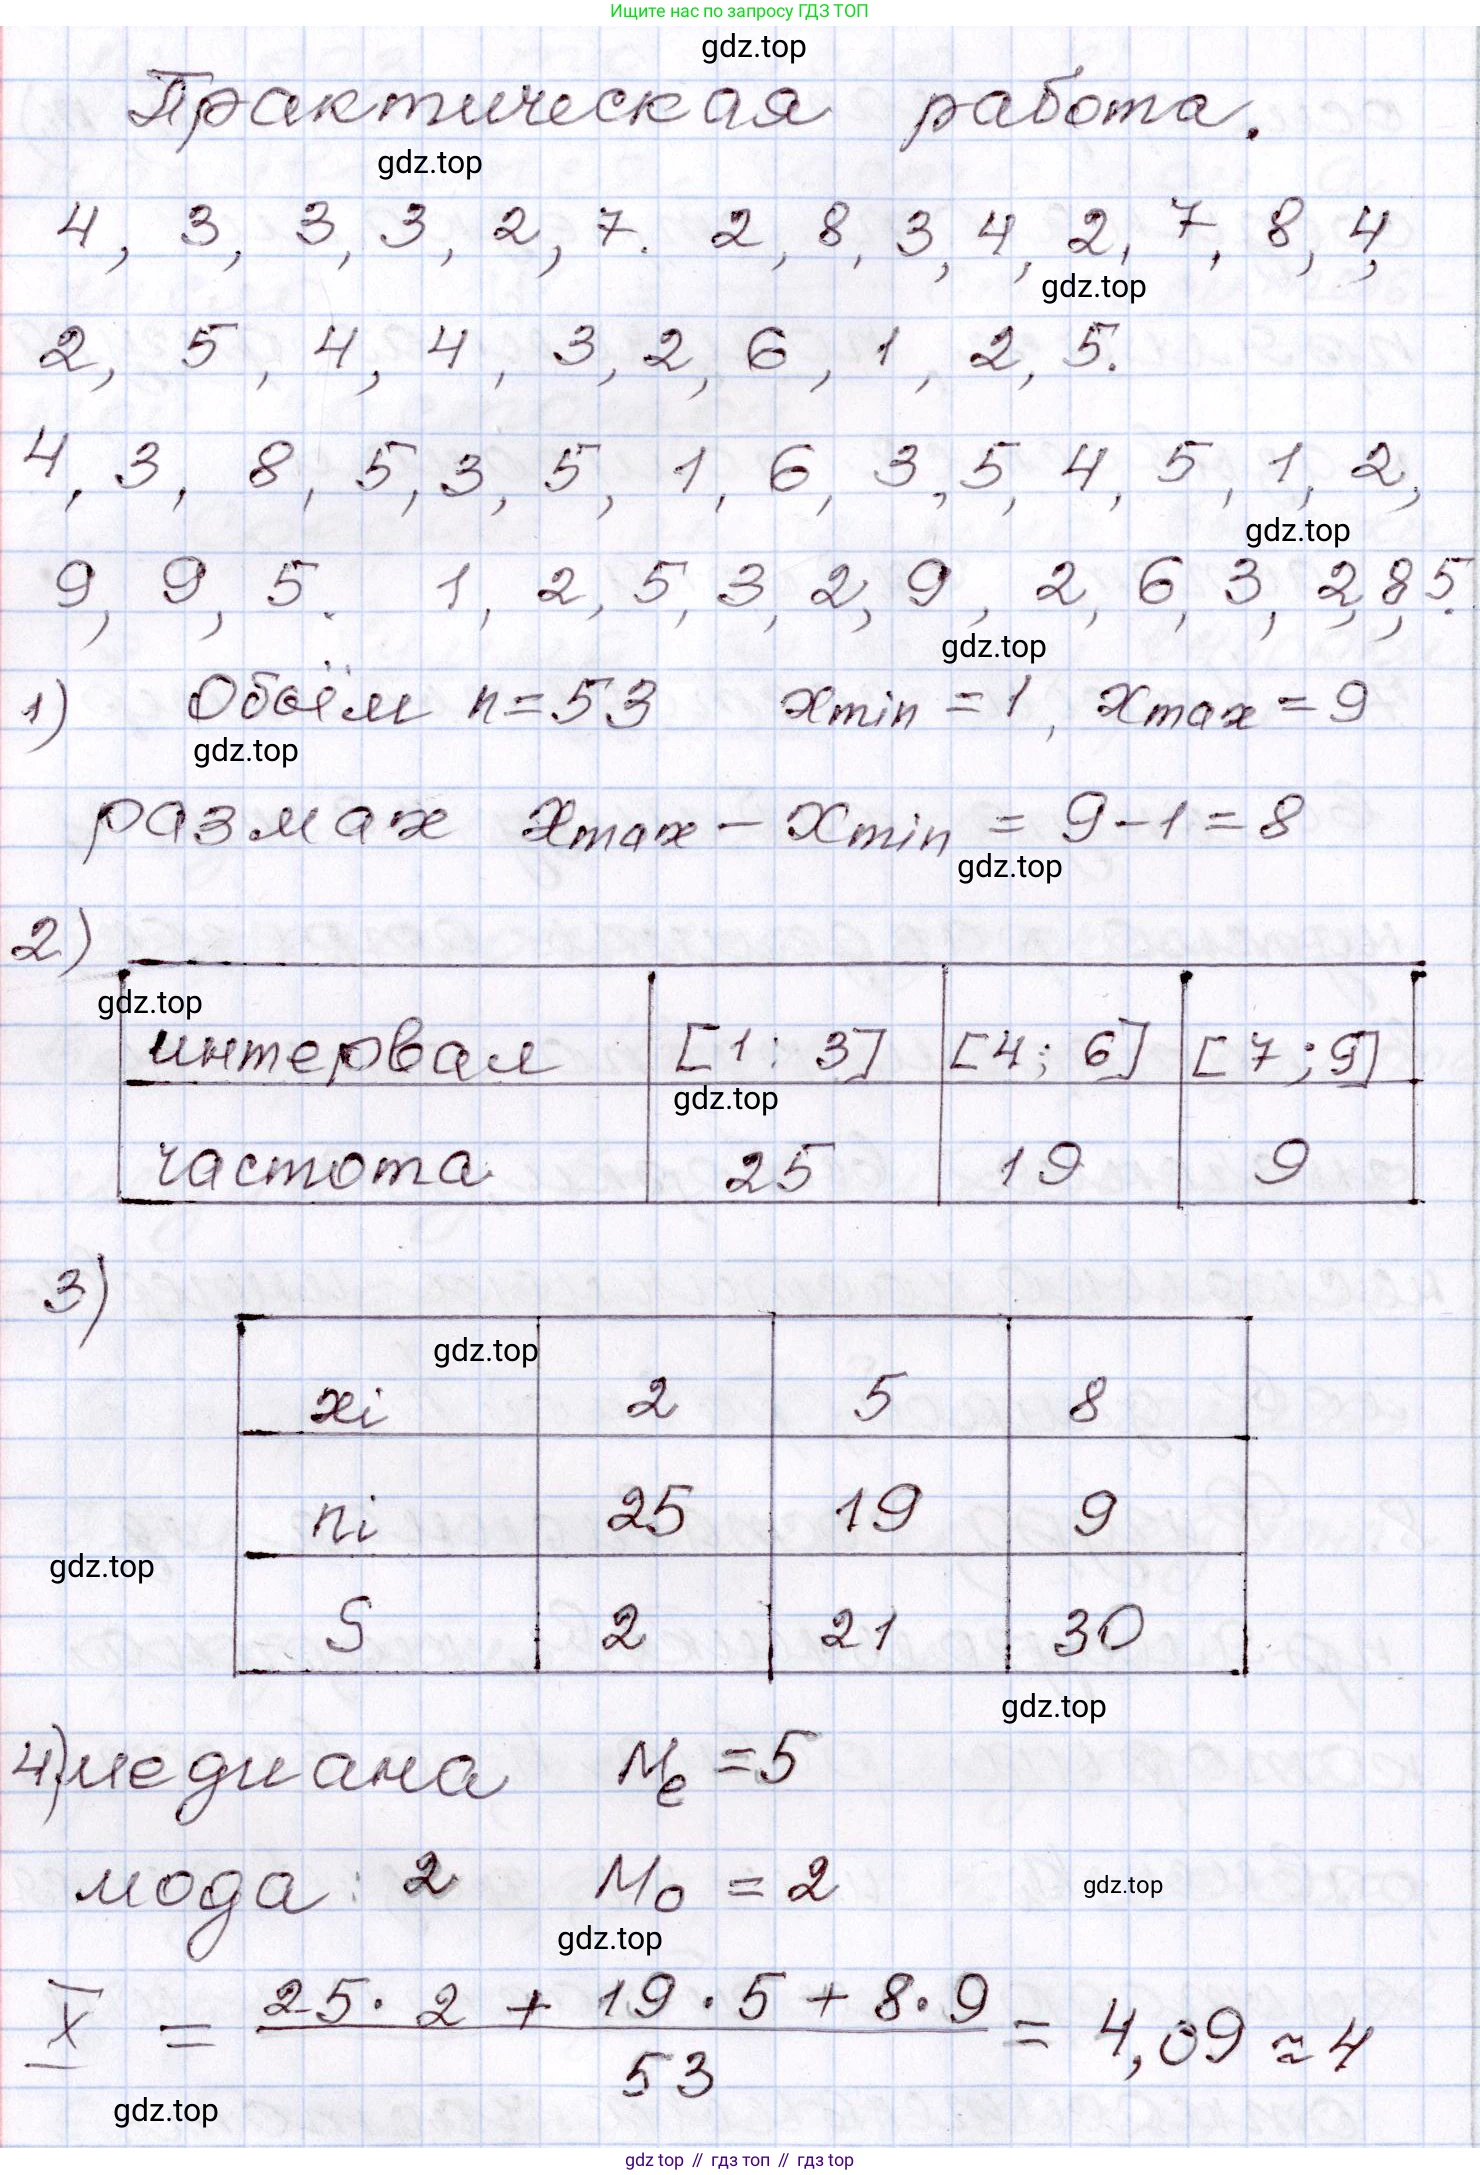 Ищите нас по запросу ГДЗ ТОП
gdz.top
Практическая работа.
gdz.top
4, 3, 3, 3, 2, 7. 2, 8, 3, 4, 2, 7, 8, 4,
gdz.top
2, 5, 4, 4, 3, 2, 6, 1, 2, 5.
4, 3, 8, 5, 3, 5, 1, 6, 3, 5, 4, 5, 1, 2,
gdz.top
9, 9, 5. 1, 2, 5, 3, 2, 9, 2, 6, 3, 2, 8, 5.
gdz.top
1) Объём n = 53 xmin = 1, xmax = 9
gdz.top
размах xmax - xmin = 9 - 1 = 8
gdz.top
2)
gdz.top
интервал [1; 3] [4; 6] [7; 9]
gdz.top
частота 25 19 9
3)
gdz.top
xi 2 5 8
ni 25 19 9
gdz.top
S 2 21 30
gdz.top
4) медиана Me = 5
мода: 2 Mo = 2
gdz.top
gdz.top
X̅ = (25 · 2 + 19 · 5 + 8 · 9) / 53 = 4,09 ≈ 4
gdz.top
gdz top // гдз топ // гдз top